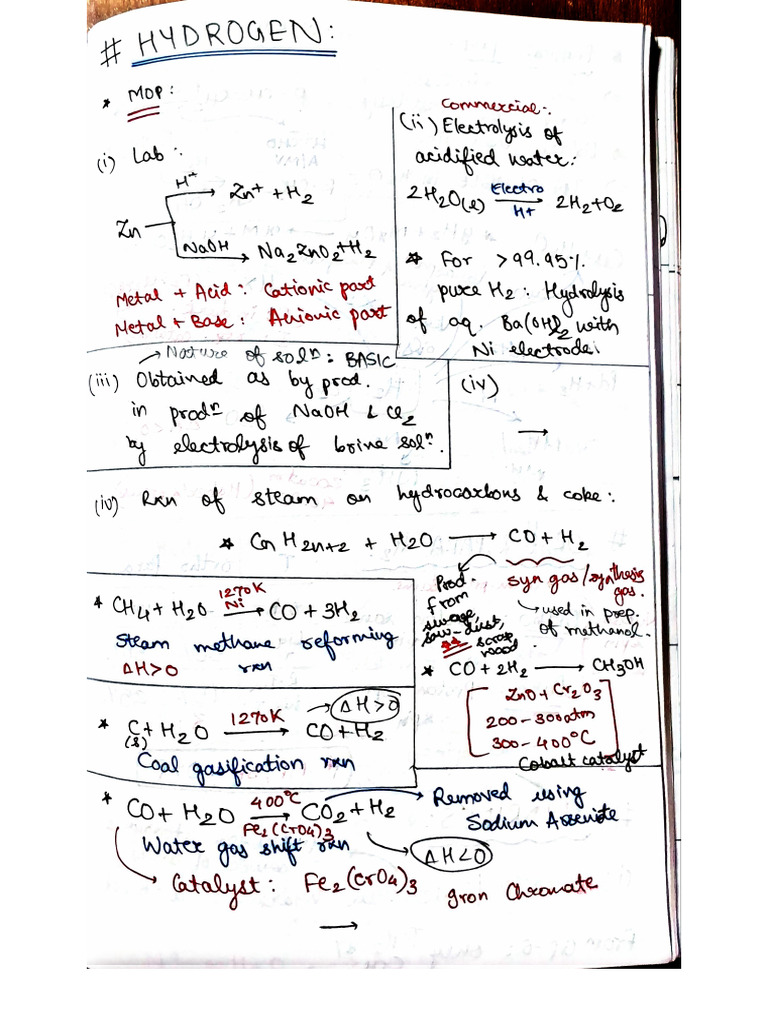 # HYDROGEN:
* MOP:
(i) Lab:
Zn
H⁺ → Zn⁺ + H₂
NaOH → Na₂ZnO₂ + H₂
Metal + Acid: Cationic part
Metal + Base: Anionic part
Commercial:
(ii) Electrolysis of
acidified water:
2H₂O(l) Electro → H+ 2H₂ + O₂
* For > 99.95%
pure H₂: Hydrolysis
of aq. Ba(OH)₂ with
Ni electrode.
→ Nature of solⁿ: BASIC
(iii) Obtained as by prod.
in prodⁿ of NaOH & Cl₂
by electrolysis of brine solⁿ.
(iv)
→
(iv) Rxn of steam on hydrocarbons & coke:
* CnH2n+2 + H2O → CO + H₂
syn gas/synthesis
gas.
Prod.
from
sewage,
saw-dust,
scrap
wood.
→ used in prep.
of methanol.
* CH₄ + H₂O 1270K → Ni CO + 3H₂
Steam methane reforming
ΔH>0 rxn
* CO + 2H₂ → CH₃OH
ZnO + Cr₂O₃
200-300atm
300-400°C
Cobalt catalyst
* C + H₂O 1270K → CO + H₂
(s)
ΔH>0
Coal gasification rxn
* CO + H₂O 400°C → Fe₂(CrO₄)₃ CO₂ + H₂
Removed using
Sodium Arsenite
Water gas shift rxn
ΔH<0
Catalyst: Fe₂(CrO₄)₃ Iron Chromate
→